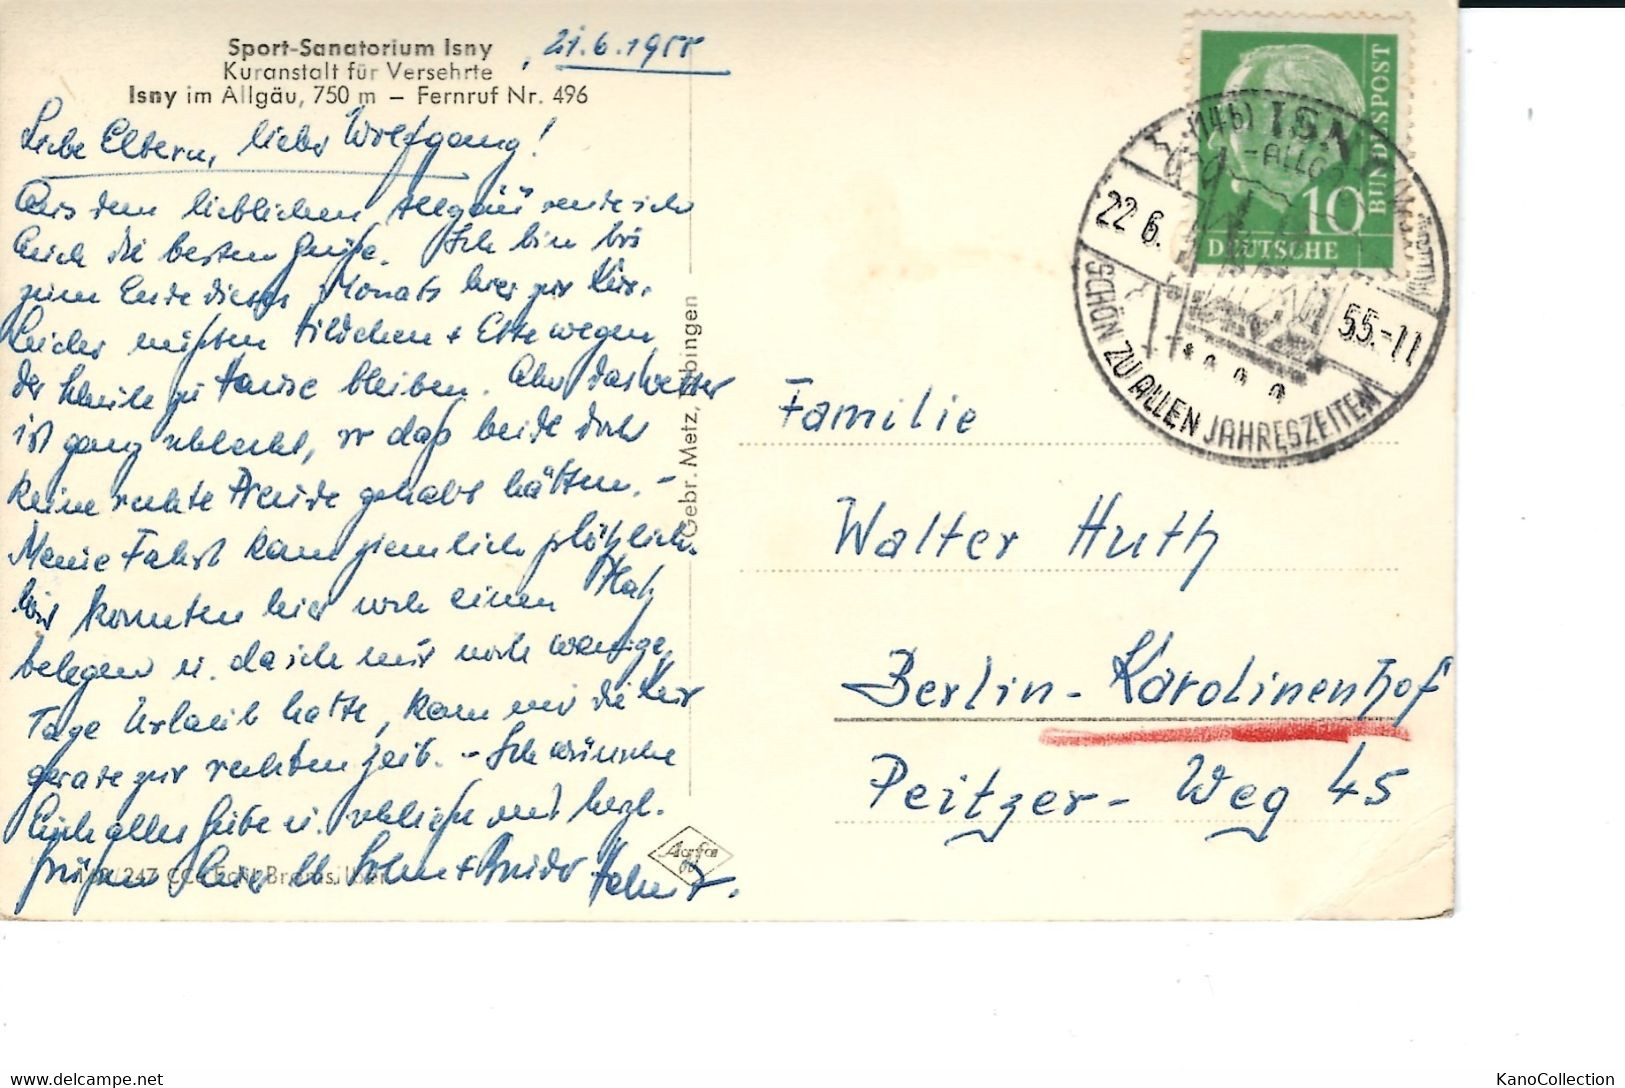 Sport-Sanatorium Isny
Kuranstalt für Versehrte
Isny im Allgäu, 750 m – Fernruf Nr. 496
21.6.1955
Liebe Eltern, lieber Wolfgang!
Aus dem lieblichen Allgäu sende ich
Euch die besten Grüße. Ich bin bis
zum Ende dieses Monats hier zur Kur.
Leider mußten Hildchen + Elke wegen
der Schule zu Hause bleiben. Aber das Wetter
ist ganz schlecht, so daß beide doch
keine rechte Freude gehabt hätten. –
Meine Fahrt kam ziemlich plötzlich.
Wir konnten hier noch einen Platz
belegen u. da ich nur noch wenige
Tage Urlaub hatte, kam mir die Kur
gerade zur rechten Zeit. – Ich wünsche
Euch alles Liebe u. und herzl.
grüßen Euer Sohn + Bruder
Gebr. Metz, Tübingen
Agfa
DEUTSCHE
BUNDESPOST
10
(14b) ISNY
-ALLGÄU
22 6. 55.-11
SCHÖN ZU ALLEN JAHRESZEITEN
Familie
Walter Huth
Berlin-Karolinenhof
Peitzer-Weg 45
www.delcampe.net
KanoCollection